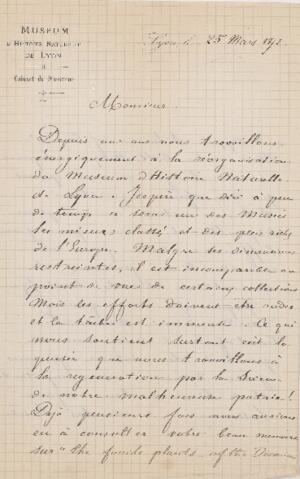 MUSEUM
D'HISTOIRE NATURELLE
DE LYON
Cabinet du Directeur
Lyon, le 25 Mars 187
Monsieur
Depuis un an nous travaillons
énergiquement à la réorganisation
du Museum d'Histoire Naturelle
de Lyon. J'espère que d'ici à peu
de temps ce sera un des Musées
les mieux classés et des plus riches
de l'Europe. Malgré ses dimensions
restreintes, il est incomparable au
point de vue de certaines collections
Mais les efforts doivent être rudes
et la tâche est immense. Ce qui
nous soutient surtout c'est la
pensée que nous travaillons à
la regeneration par la Science
de notre malheureuse patrie!
Déjà plusieurs fois nous avions
eu à consulter votre beau memoire
sur "the fossils plants of the Devonian